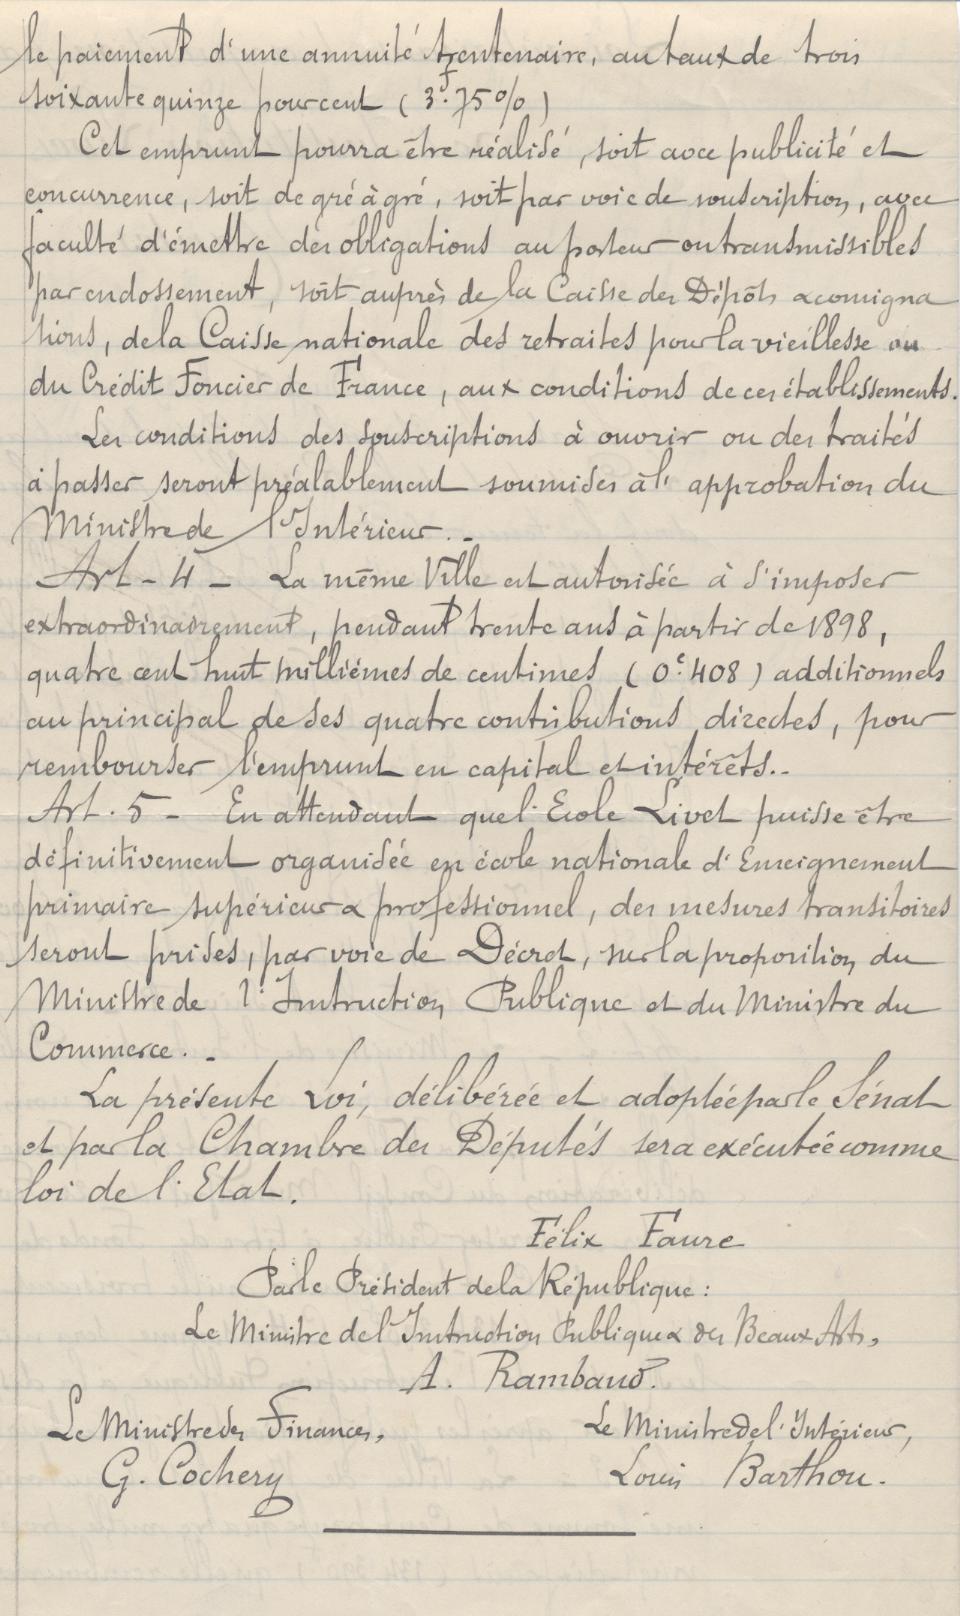 le paiement d'une annuité trentenaire, au taux de trois
soixante quinze pour cent (3f.75%)
Cet emprunt pourra être réalisé, soit avec publicité et
concurrence, soit de gré à gré, soit par voie de souscription, avec
faculté d'émettre des obligations au porteur ou transmissibles
par endossement, soit auprès de la Caisse des Dépôts & consigna
tions, de la Caisse nationale des retraites pour la vieillesse ou
du Crédit Foncier de France, aux conditions de ces établissements.
Les conditions des souscriptions à ouvrir ou des traités
à passer seront préalablement soumises à l'approbation du
Ministre de l'Intérieur. -
Art - 4 - La même Ville est autorisée à s'imposer
extraordinairement, pendant trente ans à partir de 1898,
quatre cent huit millièmes de centimes (0c.408) additionnels
au principal de ses quatre contributions directes, pour
rembourser l'emprunt en capital et intérêts. -
Art. 5 - En attendant que l'Ecole Livet puisse être
définitivement organisée en école nationale d'Enseignement
primaire supérieur & professionnel, des mesures transitoires
seront prises, par voie de Décret, sur la proposition du
Ministre de l'Instruction Publique et du Ministre du
Commerce. -
La présente Loi, délibérée et adoptée par le Sénat
et par la Chambre des Députés sera exécutée comme
loi de l'Etat.
Félix Faure
Par le Président de la République :
Le Ministre de l'Instruction Publique & des Beaux Arts,
A. Rambaud.
Le Ministre des Finances,
Le Ministre de l'Intérieur,
G. Cochery
Louis Barthou.